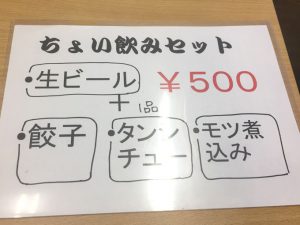 ちょい飲みセット
・生ビール ￥500
＋1品
・餃子
・タンシ
チュー
・モツ煮
込み